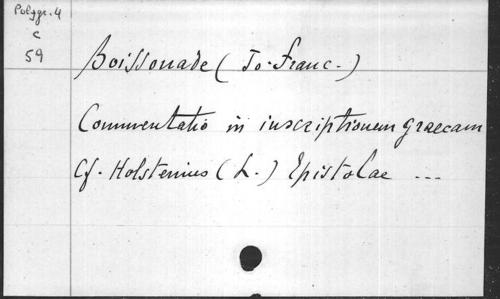 Polygr. 4
C
59
Boissonade (Jo. Franc.)
Commentatio in inscriptionem graecam
Cf. Holstenius (L.) Epistolae ...